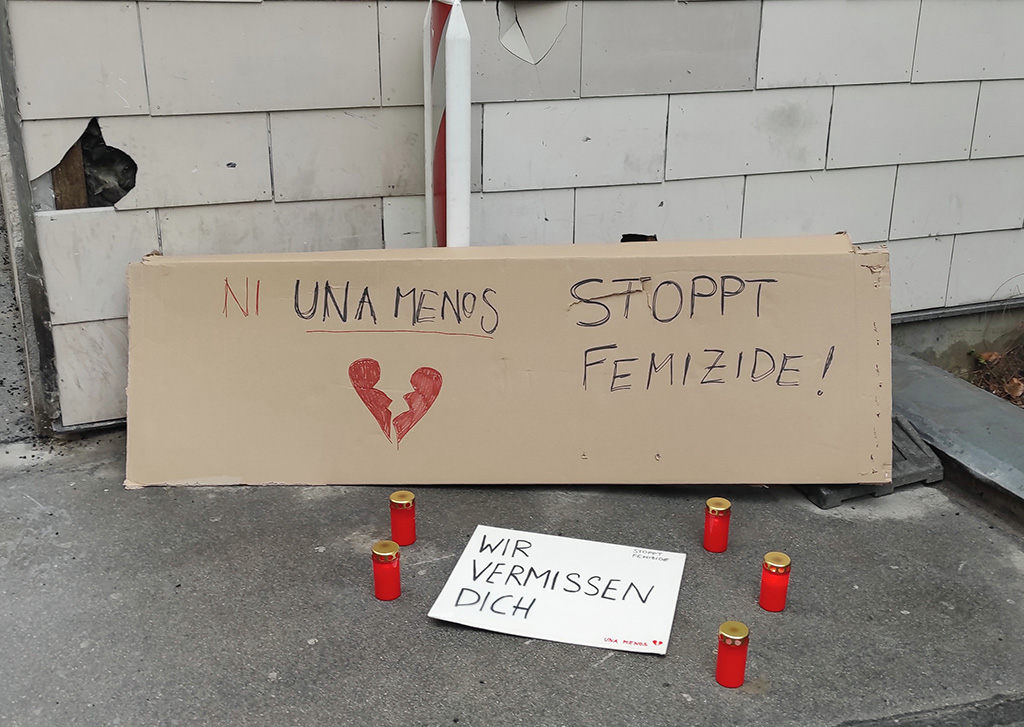 NI UNA MENOS
STOPPT
FEMIZIDE!
WIR
VERMISSEN
DICH
STOPPT
FEMIZIDE
UNA MENOS